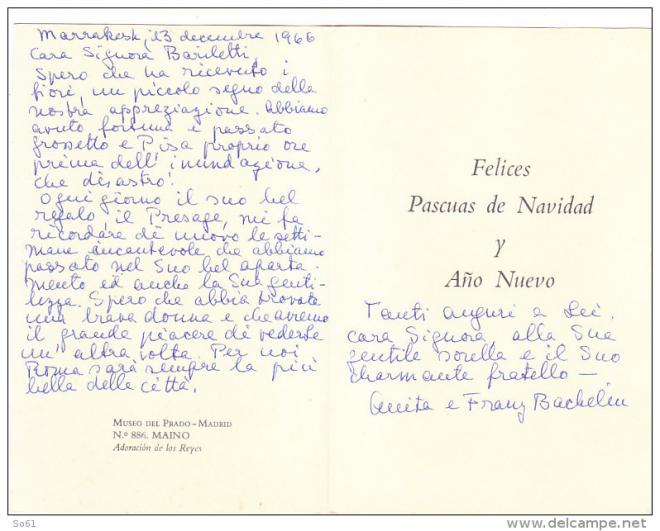 Marrakesh, il 3 decembre 1966
Cara Signora Bariletti,
Spero che ha ricevuto i
fiori, un piccolo segno della
nostra appreziazione. Abbiamo
avuto fortuna e passato
Grossetto e Pisa proprio ore
prima dell' inundazione,
che disastro!
Ogni giorno il suo bel
regalo il Presage, mi fa
ricordare di nuovo le setti-
mane incantevole che abbiamo
passato nel Suo bel aparta-
mento ed anche la Sua genti-
lezza. Spero che abbia trovato
una brava donna e che avremo
il grande piacere di vederLe
un' altra volta. Per noi
Roma sarà sempre la più
bella delle città.
MUSEO DEL PRADO - MADRID
N.º 886. MAINO
Adoración de los Reyes
Felices
Pascuas de Navidad
y
Año Nuevo
Tanti auguri a Lei,
cara Signora alla Sua
gentile sorella e il Suo
charmante fratello —
Anita e Franz Bachelin
So61
delcampe.net